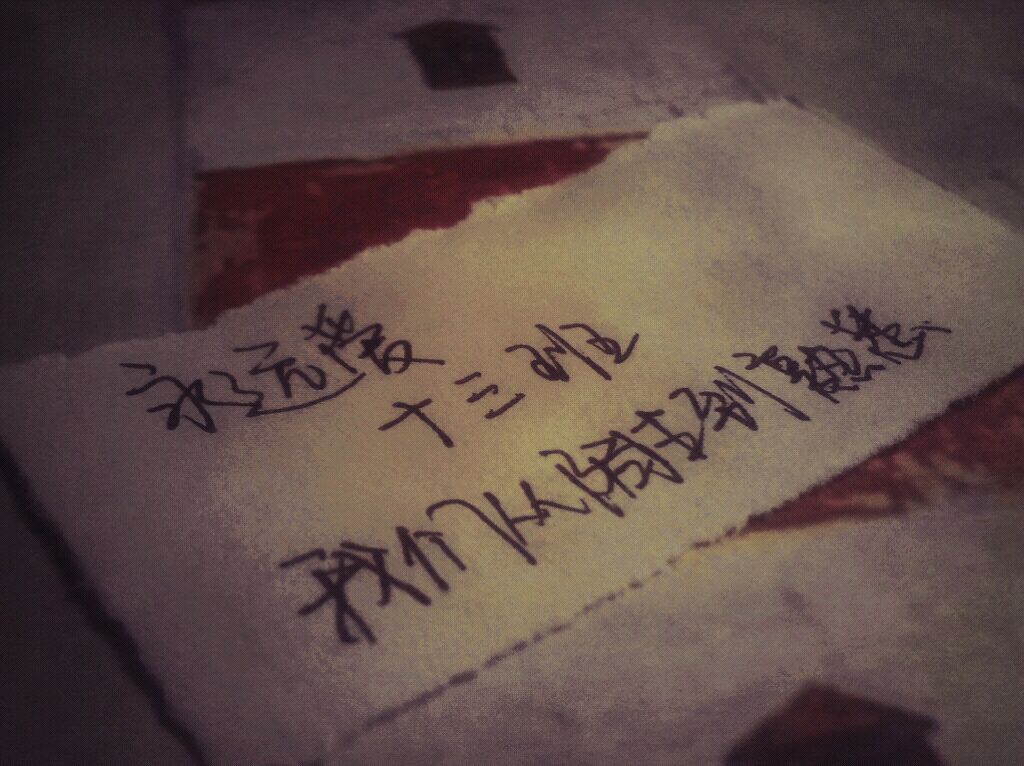 永远爱
十三班
我们从陌生到熟悉